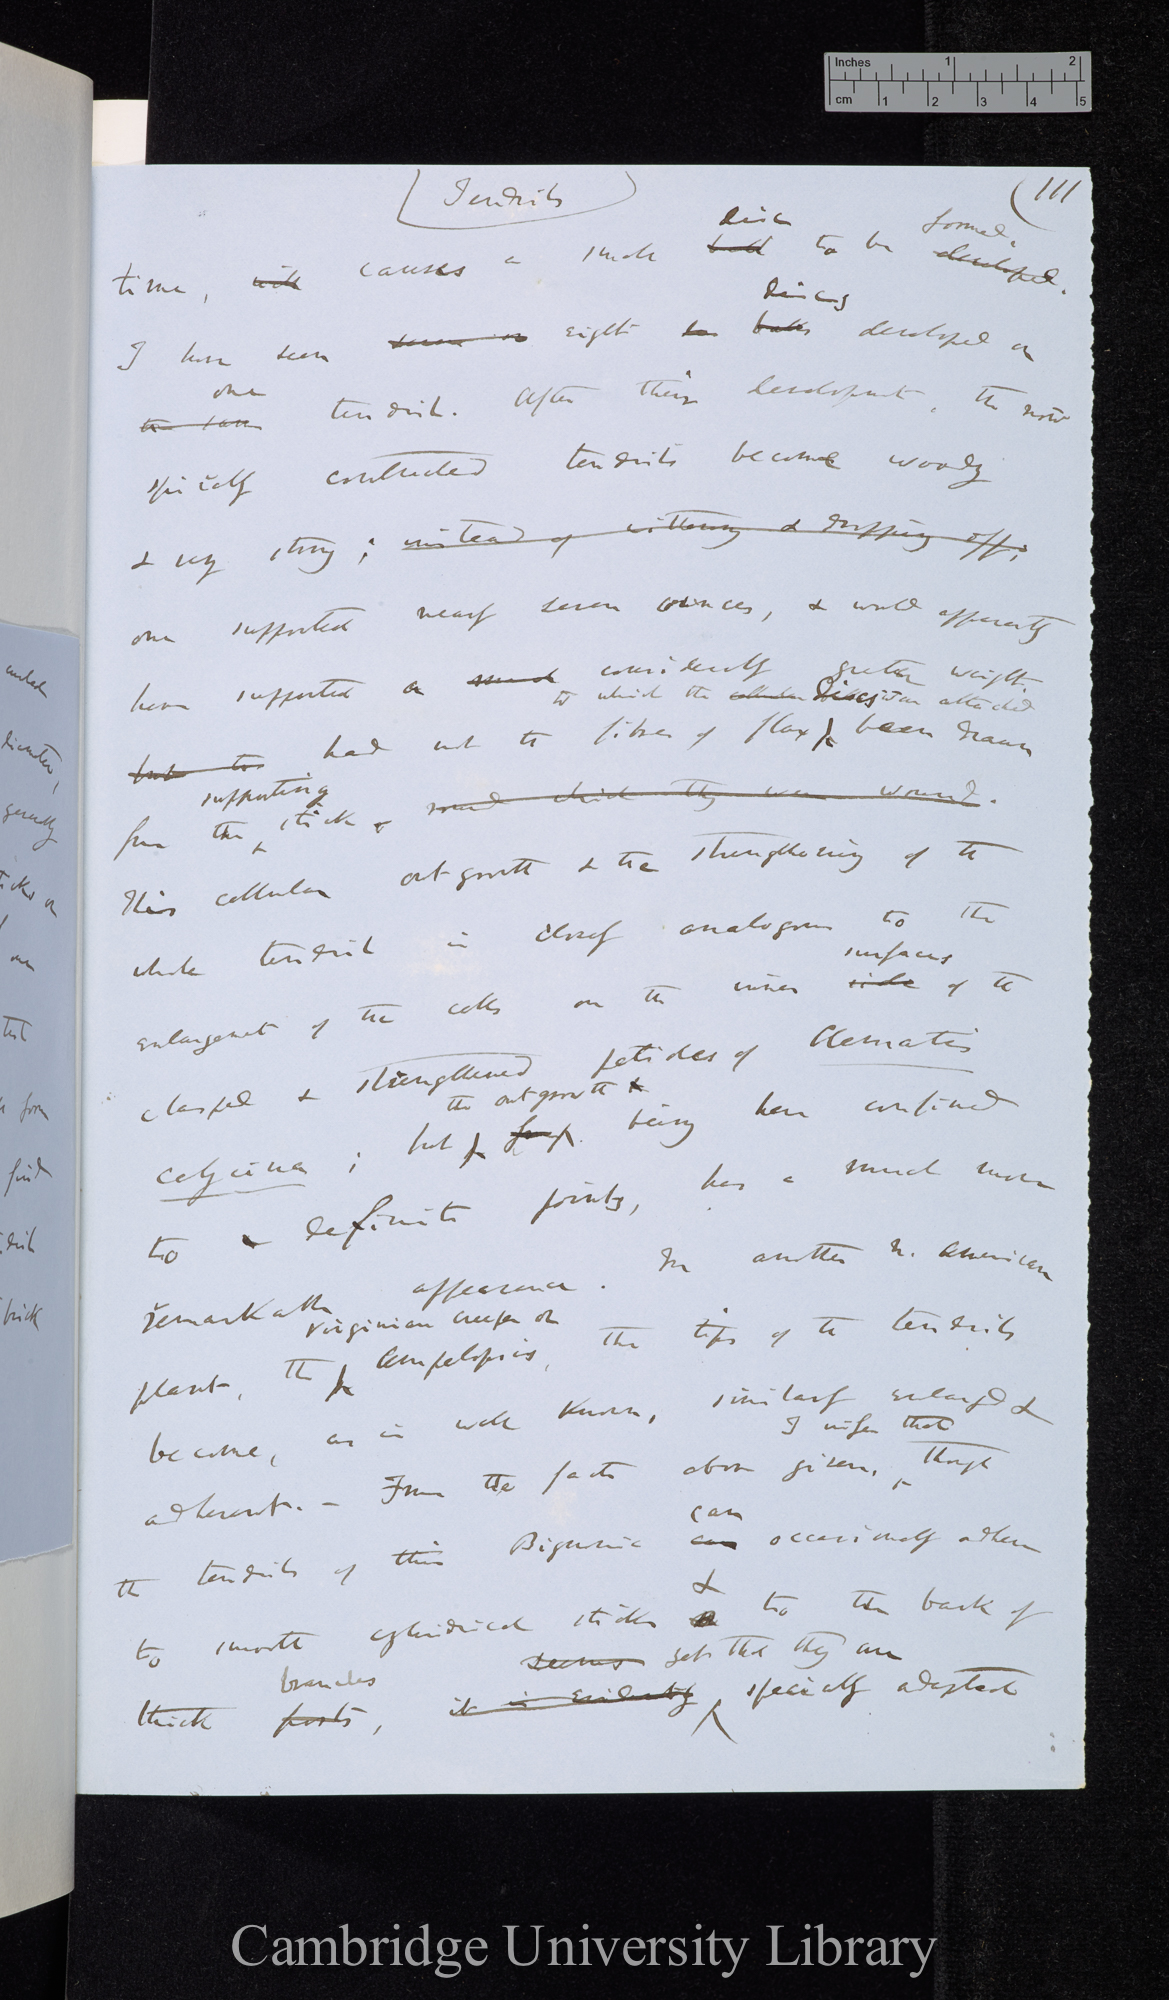 Inches 1 2
cm 1 2 3 4 5
(Tendrils)
(111
disc formed.
time, will causes a small ball to be developed.
discs
I have seen seven or eight balls developed on
one
the same tendril. After their development, the now
spirally contracted tendrils become woody
& very strong; instead of withering & dropping off;
one supported nearly seven ounces, & would apparently
have supported a much considerably greater weight.
to which the cellular discs was attached
had not the fibres of flax been drawn
supporting
from the stick round which they were wound.
This cellular outgrowth & the strengthening of the
whole tendril is closely analogous to the
surfaces
enlargement of the cells on the inner side of the
clasped & strengthened petioles of Clematis
the outgrowth &
calycina; but being here confined
to a definite points, has a much more
remarkable appearance. In another N. American
Virginian creeper or
plant, the Ampelopsis, the tips of the tendrils
become, as is well known, similarly enlarged &
I infer that
adherent. — From the facts above given, though
can
the tendrils of this Bignonia can occasionally adhere
&
to smooth cylindrical sticks to the bark of
branches seems yet that they are
thick posts, it is evidently specially adapted
Cambridge University Library